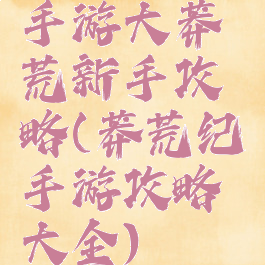 手游大莽
荒新手攻
略(莽荒纪
手游攻略
大全)